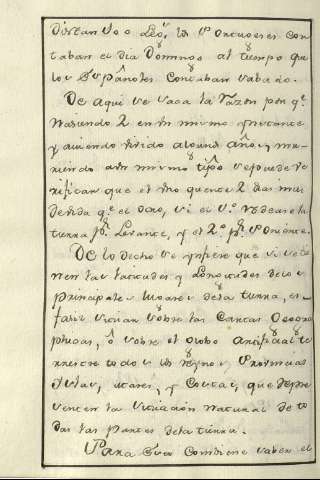 los Portugueses con
taban el dia Domingo al tiempo que
los Españoles Contaban Sabado.
De aqui se saca la razon por q.e
Nasiendo 2 en un mismo instante
y aviendo vivido algunos años, y mu
riendo a un mismo tiẽpo se puede ve
rificar que el uno quente 2 dias mas
de vida q.e el otro, si el 1.o rodease la
tierra p.r Levante, y el 2.o p.r Poniente.
De lo decho se infiere que si se ti
nen las latitudes y Longitudes delos
principales lugares dela tierra, es
facil situar sobre las Cartas Geogra
phicas, ô sobre el Globo Artificial te
rrestre todos los Reynos Provincias
Yslas, Mares, y Costas, que repre
senten la situacion natural de to
das las partes dela tierra.
Para Conviene saber el